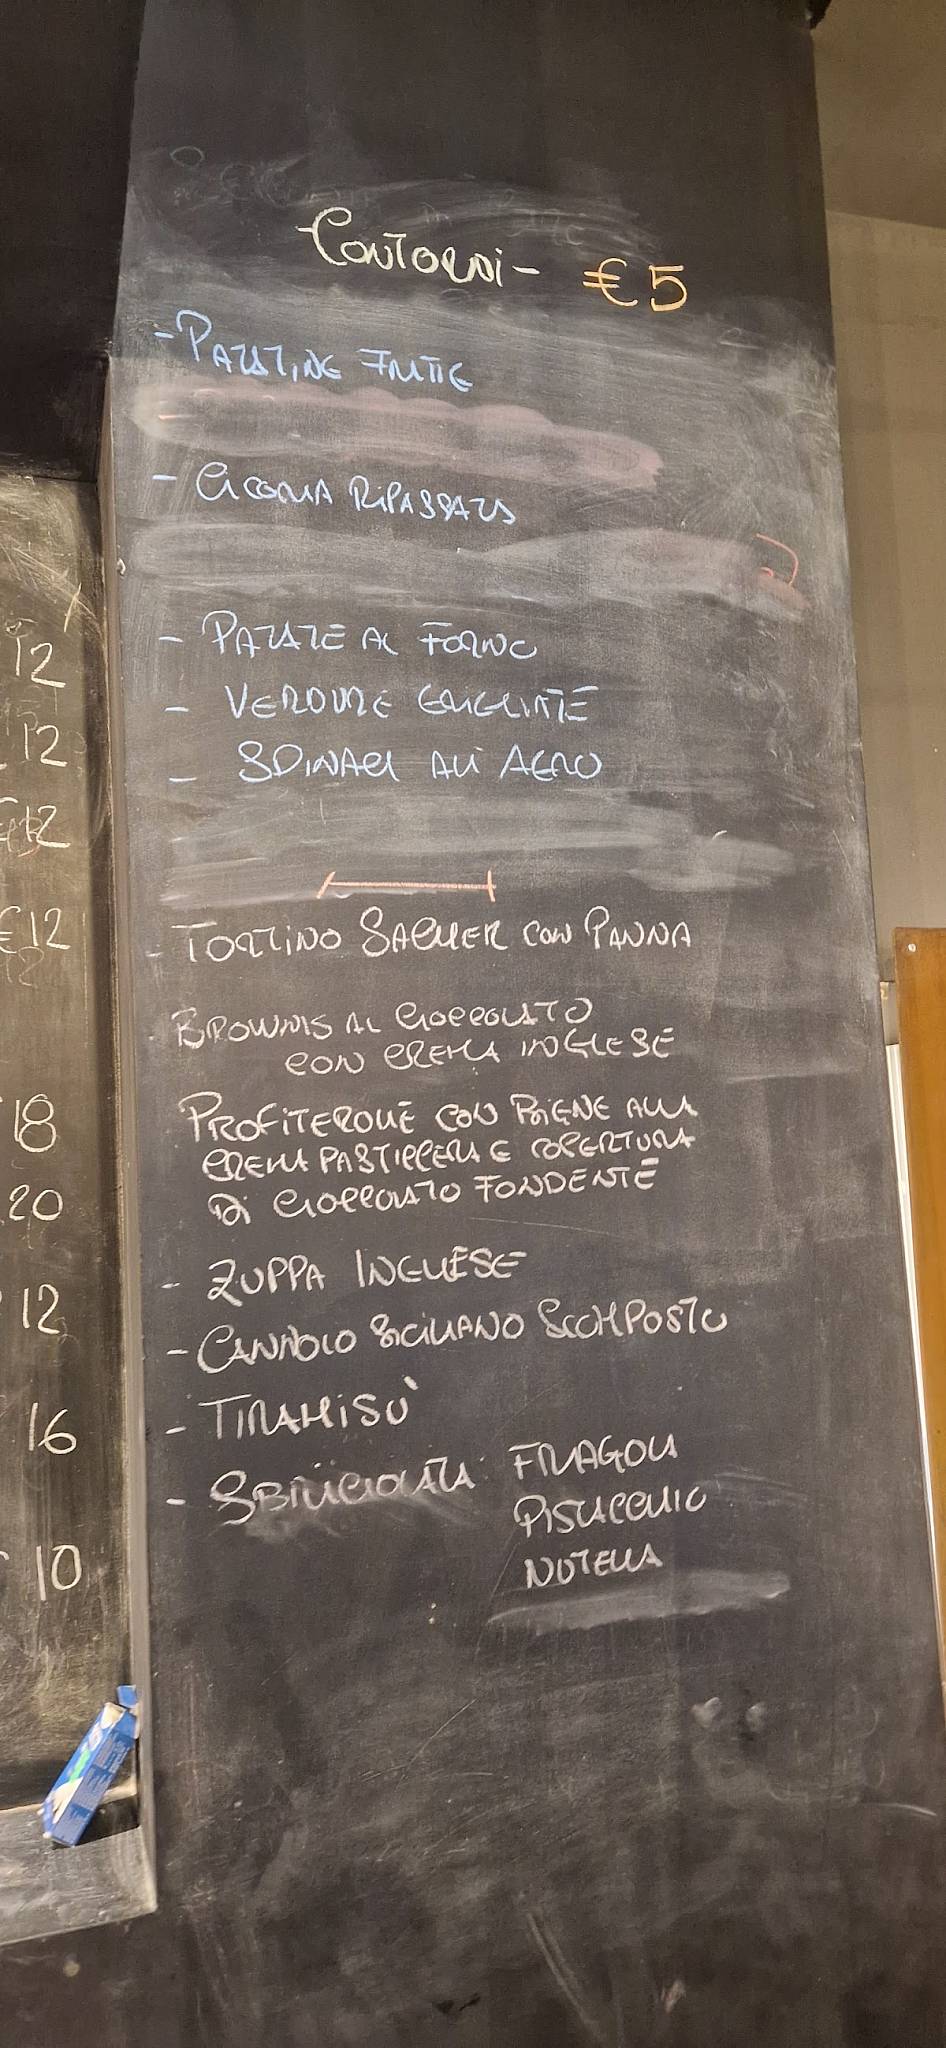 Contorni - €5
- PATATINE FRITTE
- CICORIA RIPASSATA
- PATATE AL FORNO
- VERDURE GRIGLIATE
- SPINACI ALL AGRO
- TORTINO SACHER CON PANNA
- BROWNIS AL CIOCCOLATO
CON CREMA INGLESE
PROFITEROLE CON BIGNE ALLA
CREMA PASTICCERA E COPERTURA
DI CIOCCOLATO FONDENTE
- ZUPPA INGLESE
- CANNOLO SICILIANO SCOMPOSTO
- TIRAMISÙ
- SBRICIOLATA: FRAGOLA
PISTACCHIO
NUTELLA
12
12
12
€12
18
20
12
16
10